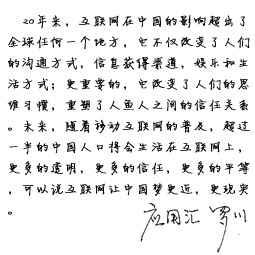 20年来，互联网在中国的影响超出了
全球任何一个地方，它不仅改变了人们
的沟通方式，信息获得渠道，娱乐和生
活方式；更重要的，它改变了人们的思
维习惯，重塑了人与人之间的信任关系
。未来，随着移动互联网的普及，超过
一半的中国人口将会生活在互联网上，
更多的透明，更多的信任，更多的平等
，可以说互联网让中国梦更近，更现实
。
应用汇 罗川